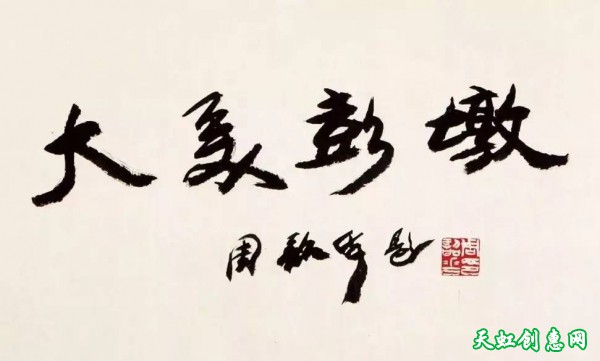 大美彭墩
周韶华题
天虹创意网